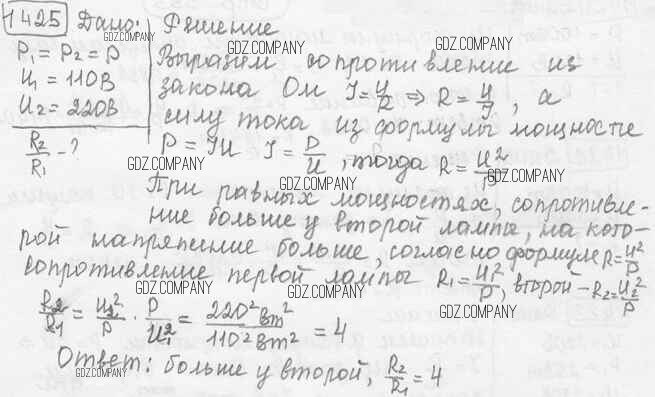 1425 Дано: Решение
P₁ = P₂ = P
U₁ = 110В
U₂ = 220В
R₂/R₁ - ?
Выразим сопротивление из
закона Ом I = U/R ⇒ R = U/I, а
силу тока из формулы мощности
P = IU I = P/U, тогда R = U²/P
При равных мощностях, сопротивле-
ние больше у второй лампы, на кото-
рой напряжение больше, согласно формуле R = U²/P
сопротивление первой лампы R₁ = U₁²/P, второй - R₂ = U₂²/P
R₂/R₁ = U₂²/P · P/U₁² = 220² Вт²/110² Вт² = 4
Ответ: больше у второй, R₂/R₁ = 4
GDZ.COMPANY
GDZ.COMPANY
GDZ.COMPANY
GDZ.COMPANY
GDZ.COMPANY
GDZ.COMPANY
GDZ.COMPANY
GDZ.COMPANY
GDZ.COMPANY
GDZ.COMPANY
GDZ.COMPANY
GDZ.COMPANY
GDZ.COMPANY
GDZ.COMPANY